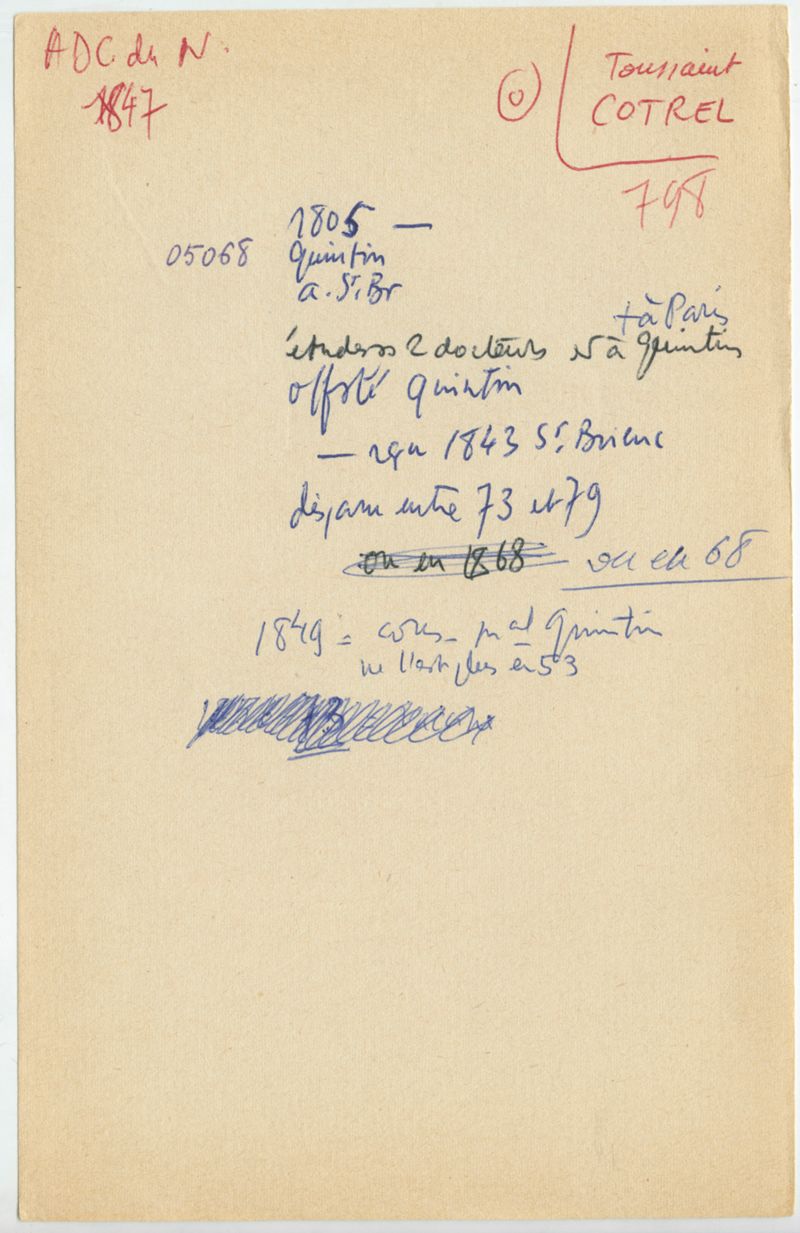 ADC du N.
1847
Toussaint
COTREL
798
1805 —
05068 Quintin
a. St. Br
+ à Paris
études ss 2 docteurs et à Quintin
off sté Quintin
— reçu 1843 St. Brieuc
disparu entre 73 et 79
ou en 1868 ou en 68
1849 = cons. mal Quintin
ne l'est plus en 53